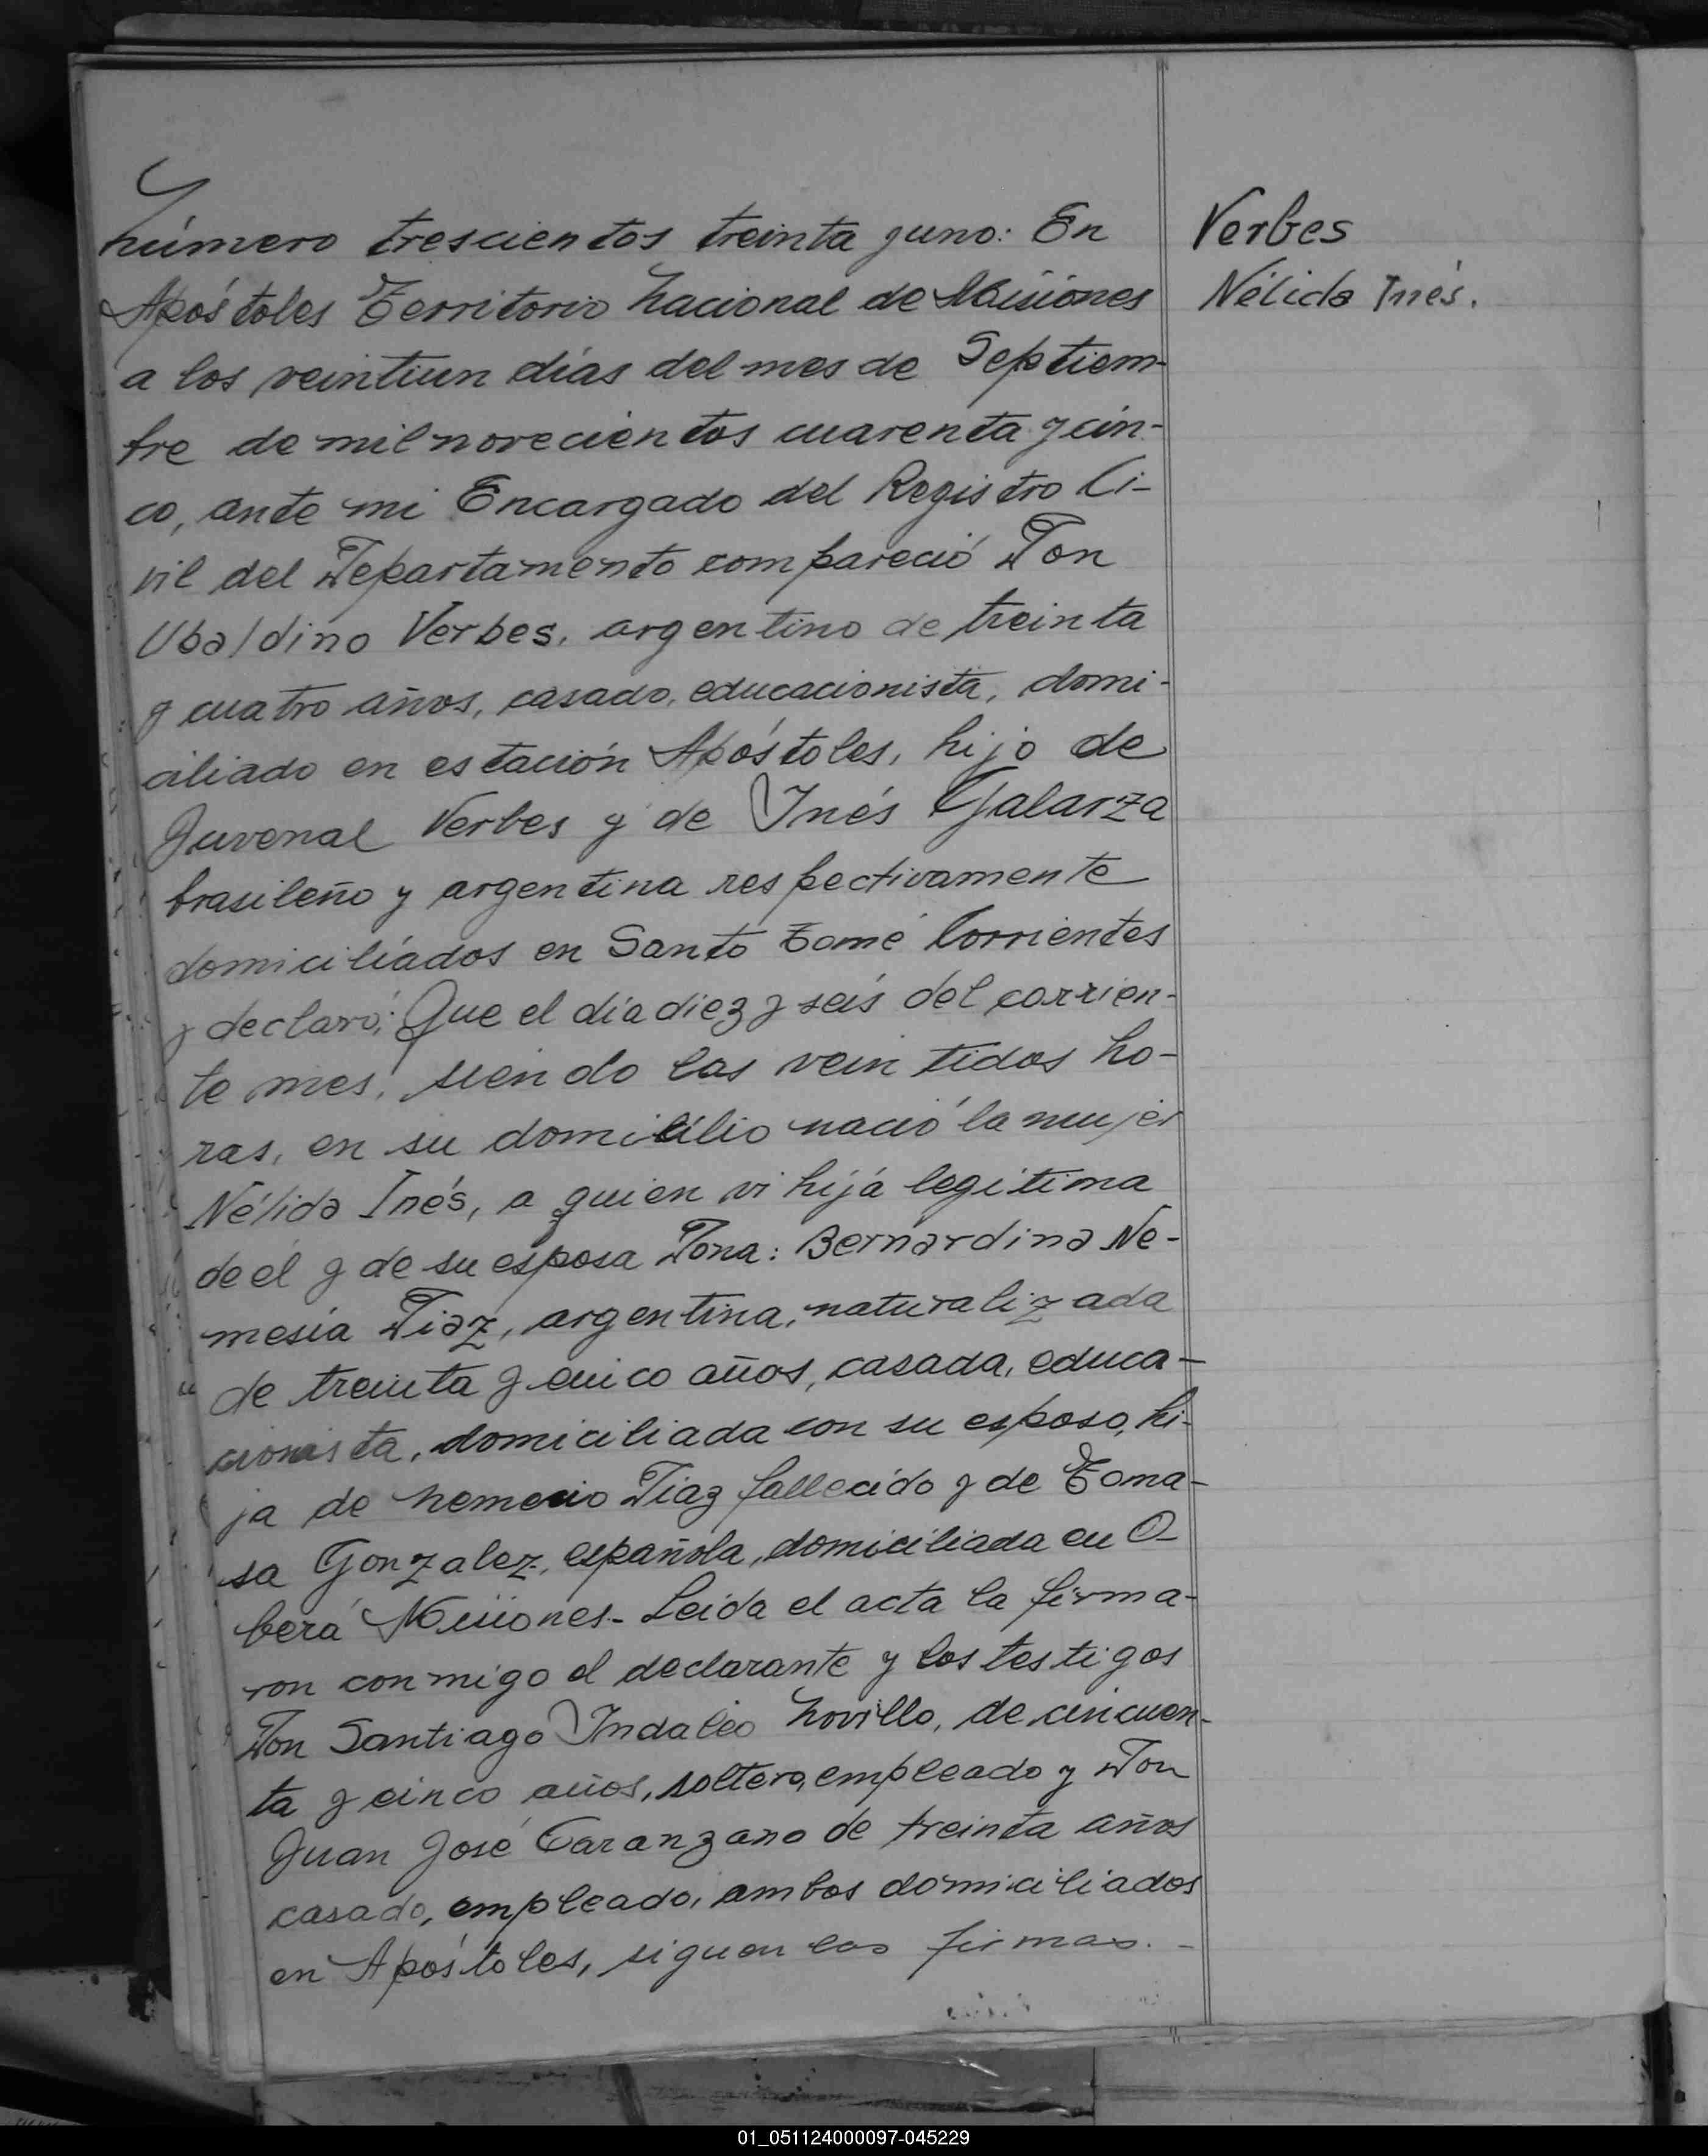 Número trescientos treinta y uno: En
Apóstoles Territorio Nacional de Misiones
a los veintiun días del mes de Septiem-
bre de mil novecientos cuarenta y cin-
co, ante mi Encargado del Registro Ci-
vil del Departamento compareció Don
Ubaldino Verbes, argentino de treinta
y cuatro años, casado, educacionista, domi-
ciliado en estación Apóstoles, hijo de
Juvenal Verbes y de Inés Galarza
brasileño y argentina respectivamente
domiciliados en Santo Tomé Corrientes
y declaró: Que el día diez y seis del corrien-
te mes, siendo las veintidos ho-
ras, en su domicilio nació la mujer
Nélida Inés, a quien vi hija legitima
de el y de su esposa Dona: Bernardina Ne-
mesia Diaz, argentina, naturalizada
de treinta y cinco años, casada, educa-
cionista, domiciliada con su esposo, hi-
ja de Nemesio Diaz fallecido y de Toma-
sa Gonzalez, española, domiciliada en O-
berá Misiones- Leida el acta la firma-
ron conmigo el declarante y los testigos
Don Santiago Indaleo Novillo, de cincuen-
ta y cinco años, soltero, empleado y Don
Juan José Taranzano de treinta años
casado, empleado, ambos domiciliados
en Apóstoles, siguen las firmas.-
Verbes
Nélida Inés.
01_051124000097-045229